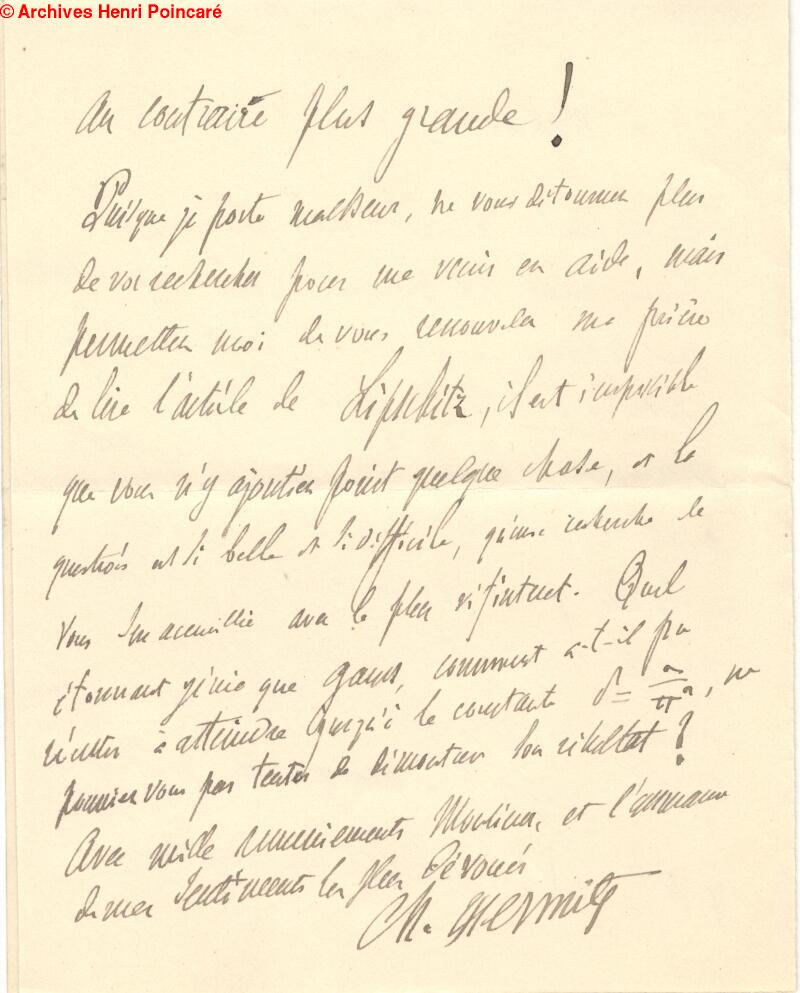 © Archives Henri Poincaré
au contraire plus grande !
Puisque je porte malheur, ne vous détournez plus
de vos recherches pour me venir en aide, mais
permettez moi de vous renouveler ma prière
de lire l'article de Lipschitz, il est impossible
que vous n'y ajoutiez point quelque chose, et la
question est si belle et si difficile, qu'une recherche de
vous sera accueillie avec le plus vif intérêt. Quel
étonnant génie que Gauss, comment a-t-il pu
réussir à atteindre jusqu'à la constante δ = , ne
pourriez vous pas tenter de démontrer son résultat ?
Avec mille remerciements Monsieur, et l'assurance
de mes sentiments les plus dévoués
Ch. Hermite